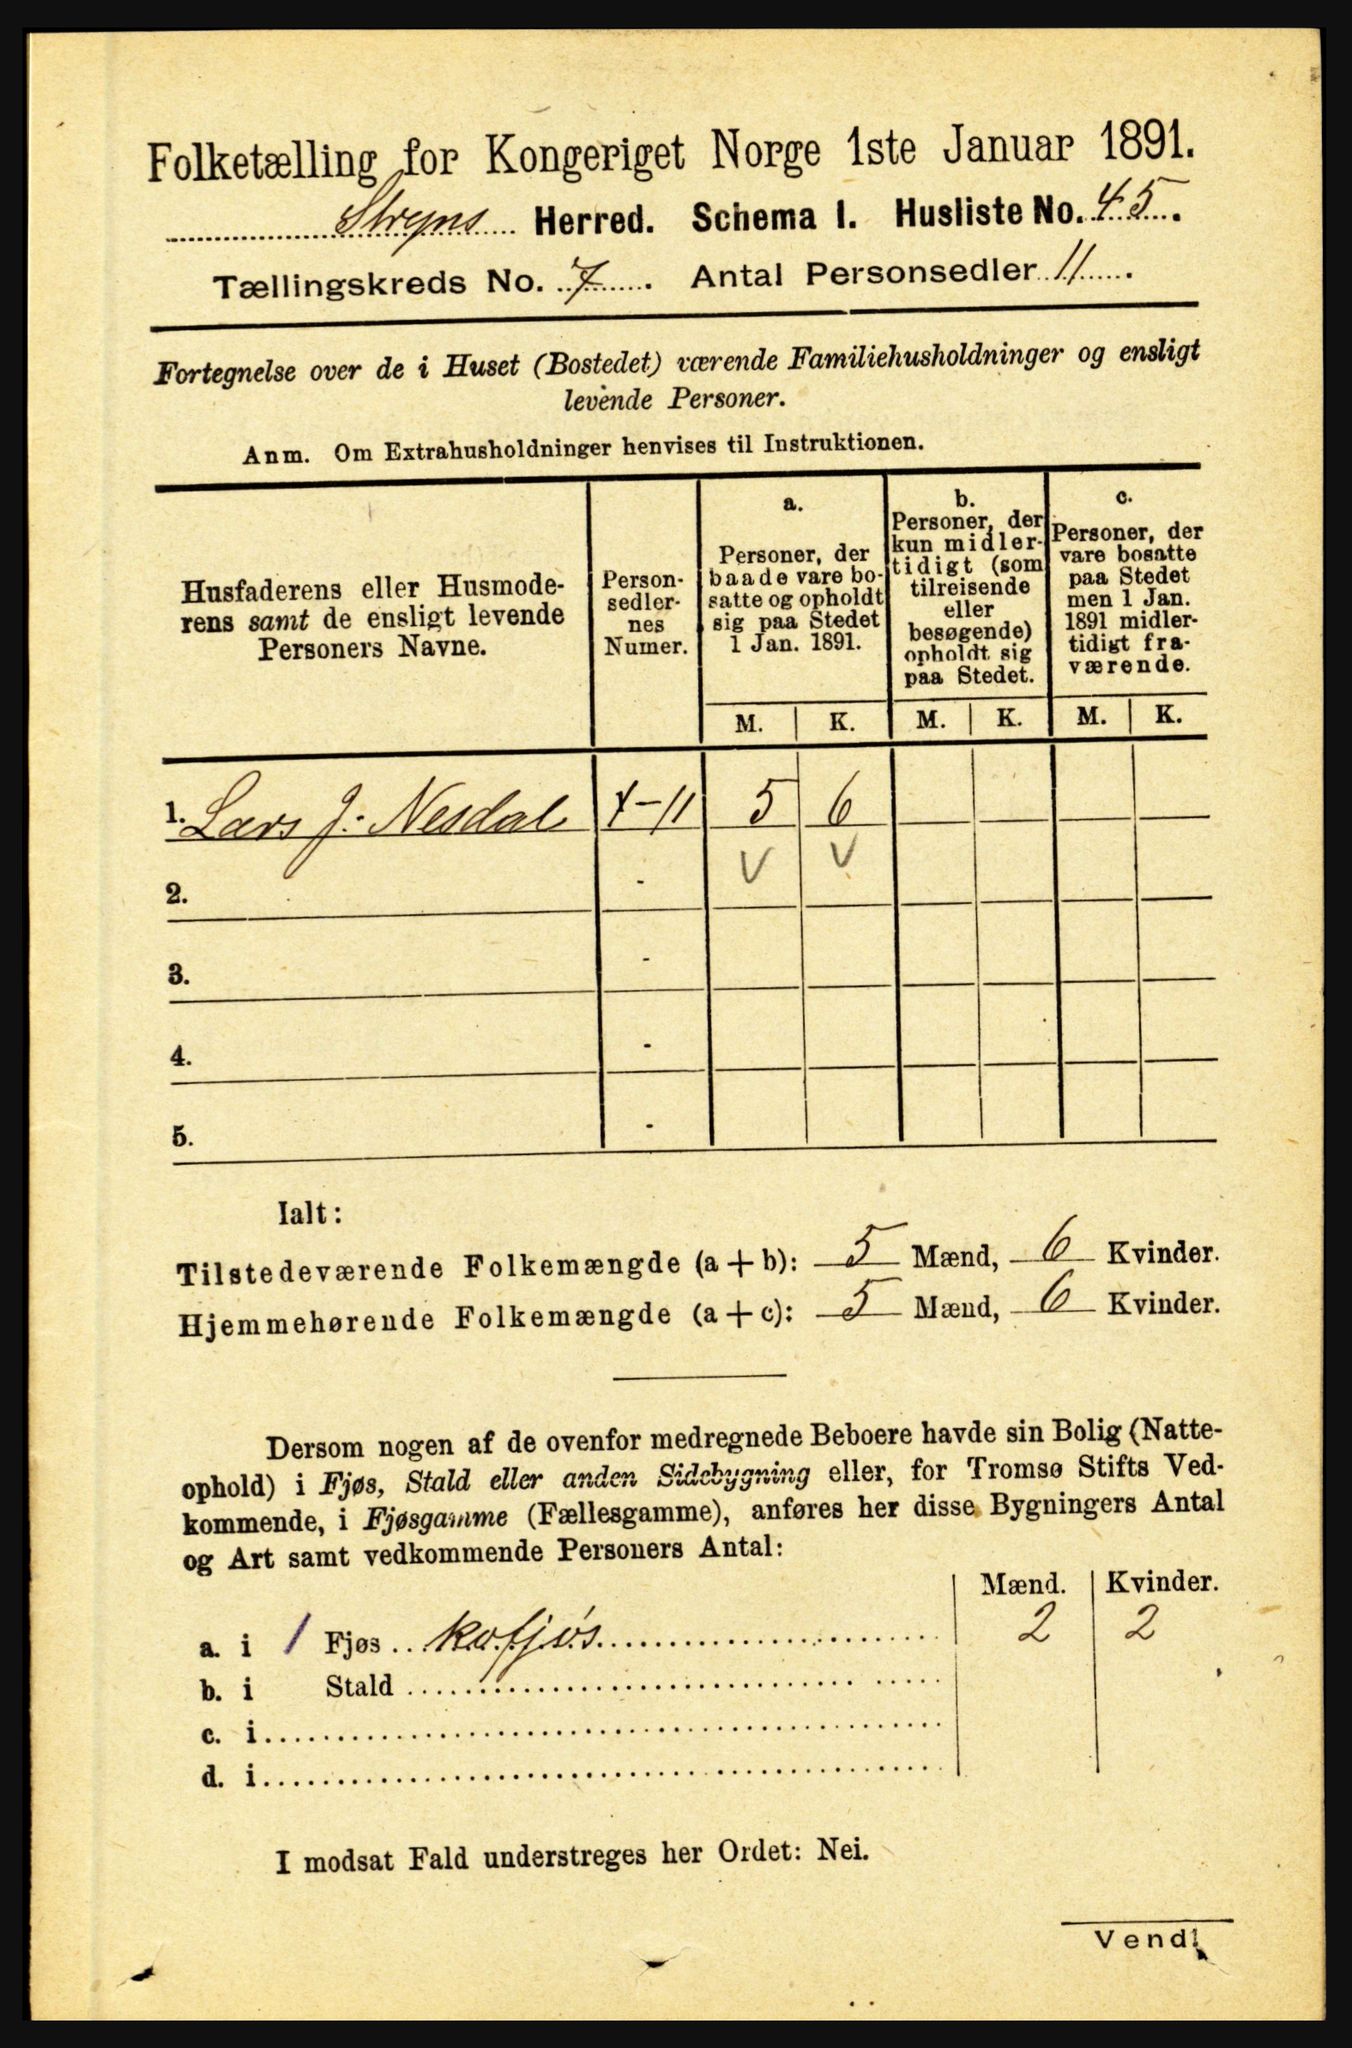 Folketælling for Kongeriget Norge 1ste Januar 1891.
Stryns Herred. Schema I. Husliste No. 45.
Tællingskreds No. 7. Antal Personsedler 11.
Fortegnelse over de i Huset (Bostedet) værende Familiehusholdninger og ensligt
levende Personer.
Anm. Om Extrahusholdninger henvises til Instruktionen.
Husfaderens eller Husmode-
rens samt de ensligt levende
Personers Navne.
Person-
sedler-
nes
Numer.
a.
Personer, der
baade vare bo-
satte og opholdt
sig paa Stedet
1 Jan. 1891.
b.
Personer, der
kun midler-
tidigt (som
tilreisende
eller
besøgende)
opholdt sig
paa Stedet.
c.
Personer, der
vare bosatte
paa Stedet
men 1 Jan.
1891 midler-
tidigt fra-
værende.
M. K. M. K. M. K.
1. Lars J. Nesdal 1-11 5 6
2. - V V
3. -
4. -
5. -
Ialt:
Tilstedeværende Folkemængde (a+b): 5 Mænd, 6 Kvinder.
Hjemmehørende Folkemængde (a+c): 5 Mænd, 6 Kvinder.
Dersom nogen af de ovenfor medregnede Beboere havde sin Bolig (Natte-
ophold) i Fjøs, Stald eller anden Sidebygning eller, for Tromsø Stifts Ved-
kommende, i Fjøsgamme (Fællesgamme), anføres her disse Bygningers Antal
og Art samt vedkommende Personers Antal:
Mænd. Kvinder.
a. i 1 Fjøs kofjøs 2 2
b. i Stald
c. i
d. i
I modsat Fald understreges her Ordet: Nei.
Vend!